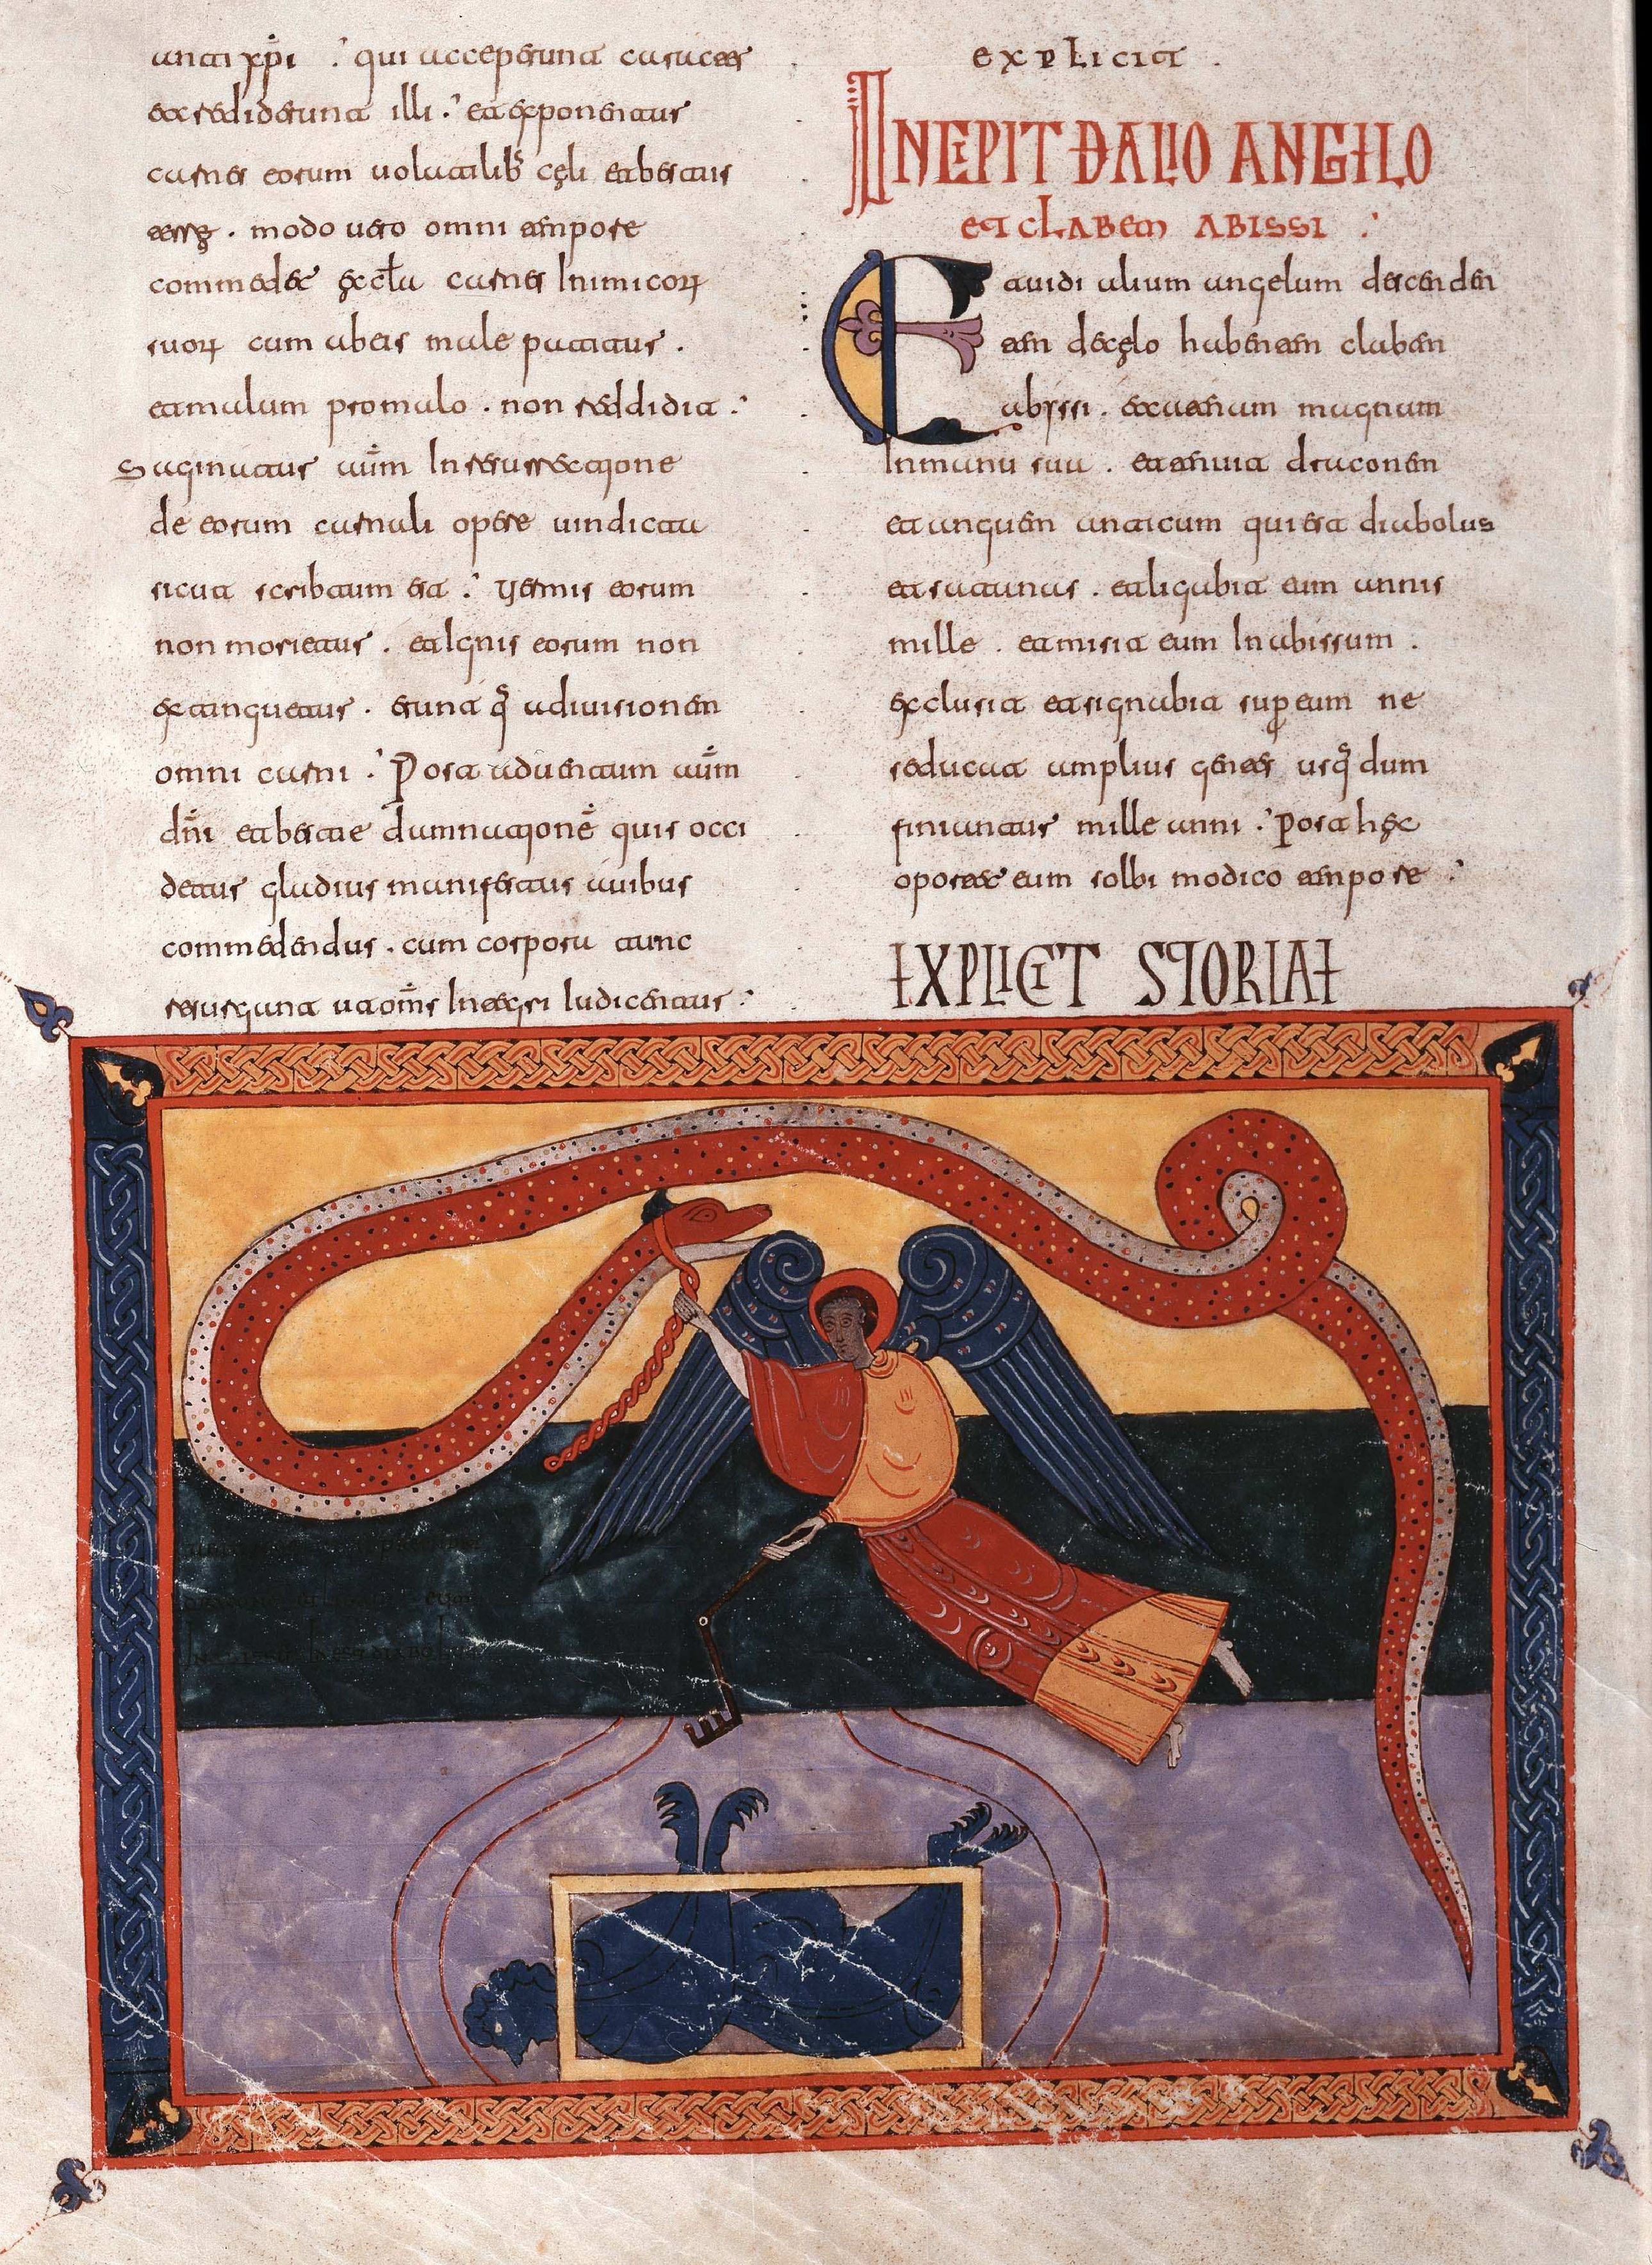 anti xpi : qui acceperunt caracter
et crediderunt illi : et exponentur
carnes eorum uolatilibs cęli et bestiis
terrę . modo uero omni tempore
commedet eccla carnes Inimicor
suor cum ab eis male patitur .
et malum pro malo . non reddidit :
Saginatur aum In resurrectione
de eorum carnali opere uindicata
sicut scribtum est : Vermis eorum
non morietur . et Ignis eorum non
extinguetur . erunt q ad uisionem
omni carni : Post aduentum aum
dni et bestie damnatione quis occi
detur gladius manifestatus auibus
commedendus . cum corpora tunc
resurgunt ut oms Iudicentur :
explicit .
INCPIT DALIO ANGELO
et clabem abissi :
Et uidi alium angelum descenden
tem de cęlo habentem clabem
abyssi . et catenam magnam
In manu sua . et tenuit draconem
et anguem anticum qui est diabolus
et satanas . et ligabit eum annis
mille . et misit eum In abissum .
et clusit et signabit sup eum ne
seducat amplius gentes usq dum
finiantur mille anni : Post hęc
oportet eum solbi modico tempore :
EXPLICIT STORIAE